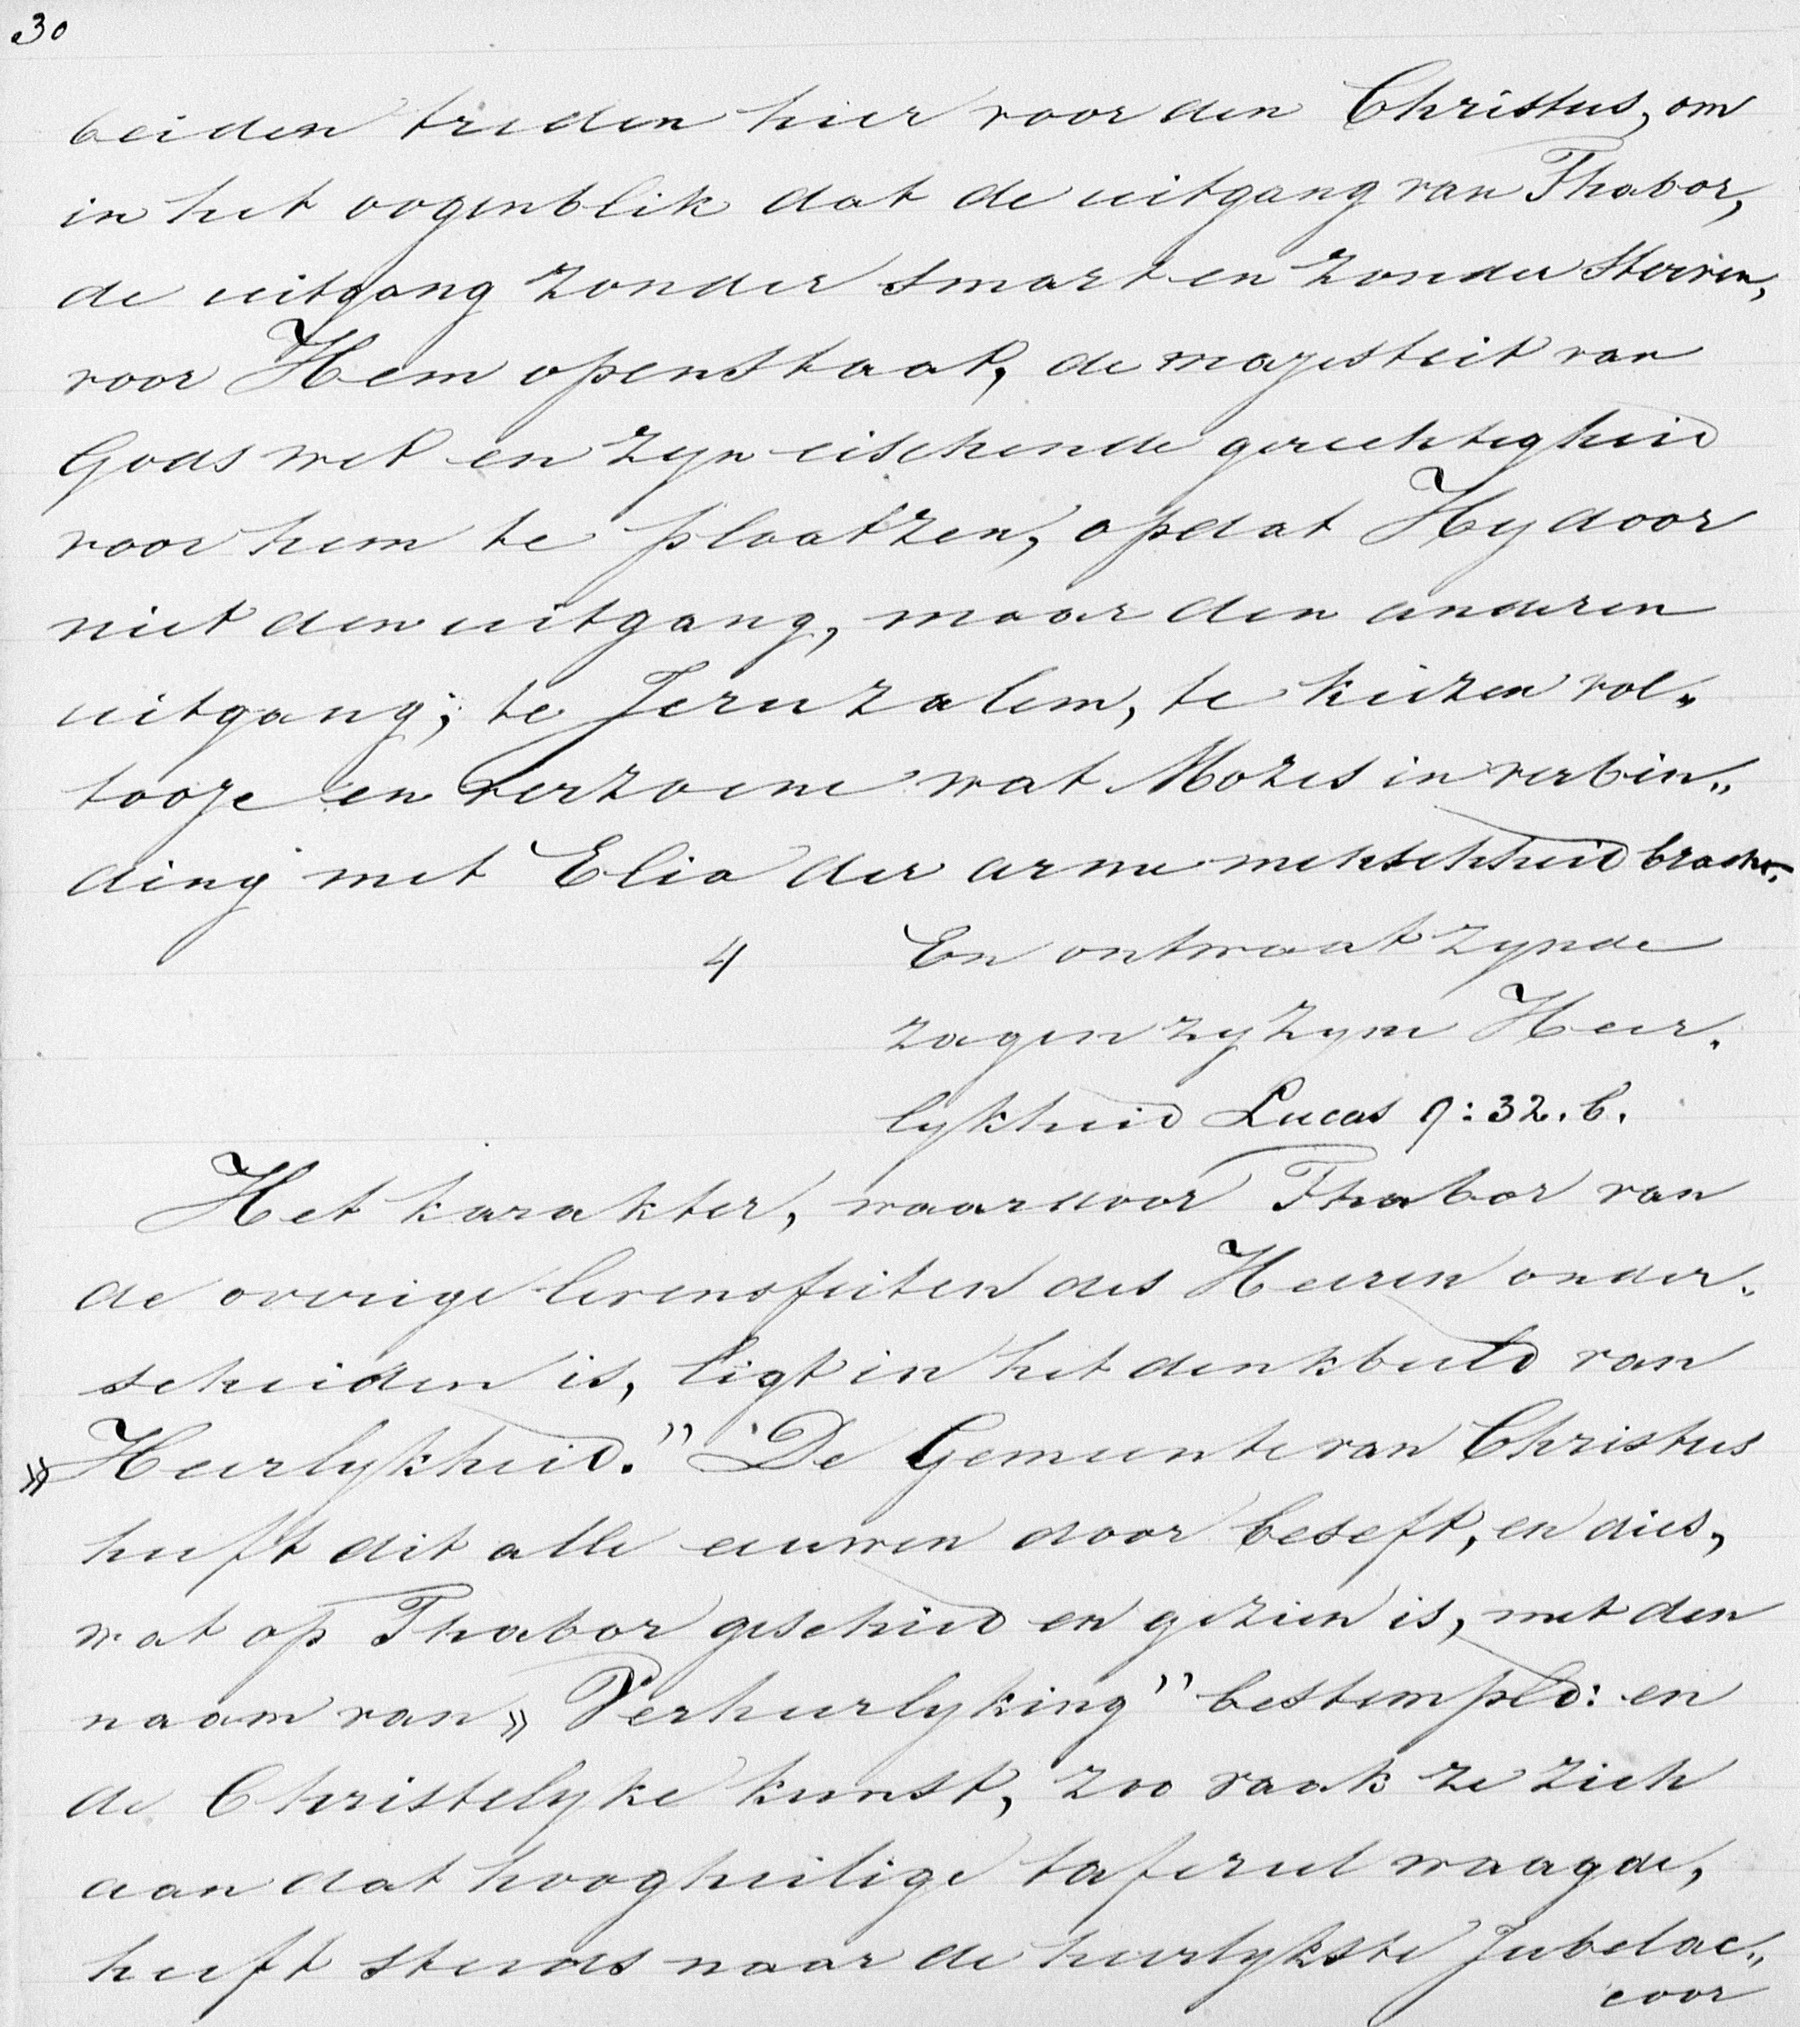 30
beiden treden hier voor den Christus, om
in het oogenblik dat de uitgang van Thabor,
de uitgang zonder smart en zonder sterven,
voor Hem openstaat, de majesteit van
Gods wet en zyn eischende gerechtigheid
voor hem te plaatzen, opdat Hy door
niet den uitgang, maar den anderen
uitgang; te Jeruzalem, te kiezen vol„
tooje en verzoene wat Mozes in verbin„
ding met Elia der arme menschheid bracht.
4 En ontwaakt zynde
zagen zy zyne Heer„
lykheid Lucas 9:32.b.
Het karakter, waardoor Thabor van
de overige levensfeiten des Heeren onder„
scheiden is, ligt in het denkbeeld van
„Heerlykheid." De Gemeente van Christus
heeft dit alle eeuwen door beseft, en dies,
wat op Thabor geschied en gezien is, met den
naam van „Verheerlyking" bestempeld: en
de Christelyke kunst, zoo vaak ze zich
aan dat hoogheilige tafereel waagde,
heeft steeds naar de heerlykste Jubelac„
coor